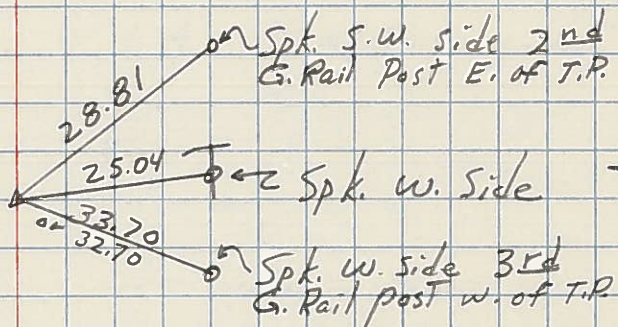 Spk. S.W. Side 2nd
G. Rail Post E. of T.P.
28.81
25.04
Spk. W. Side
33.20
32.70
Spk. W. Side 3rd
G. Rail post W. of T.P.